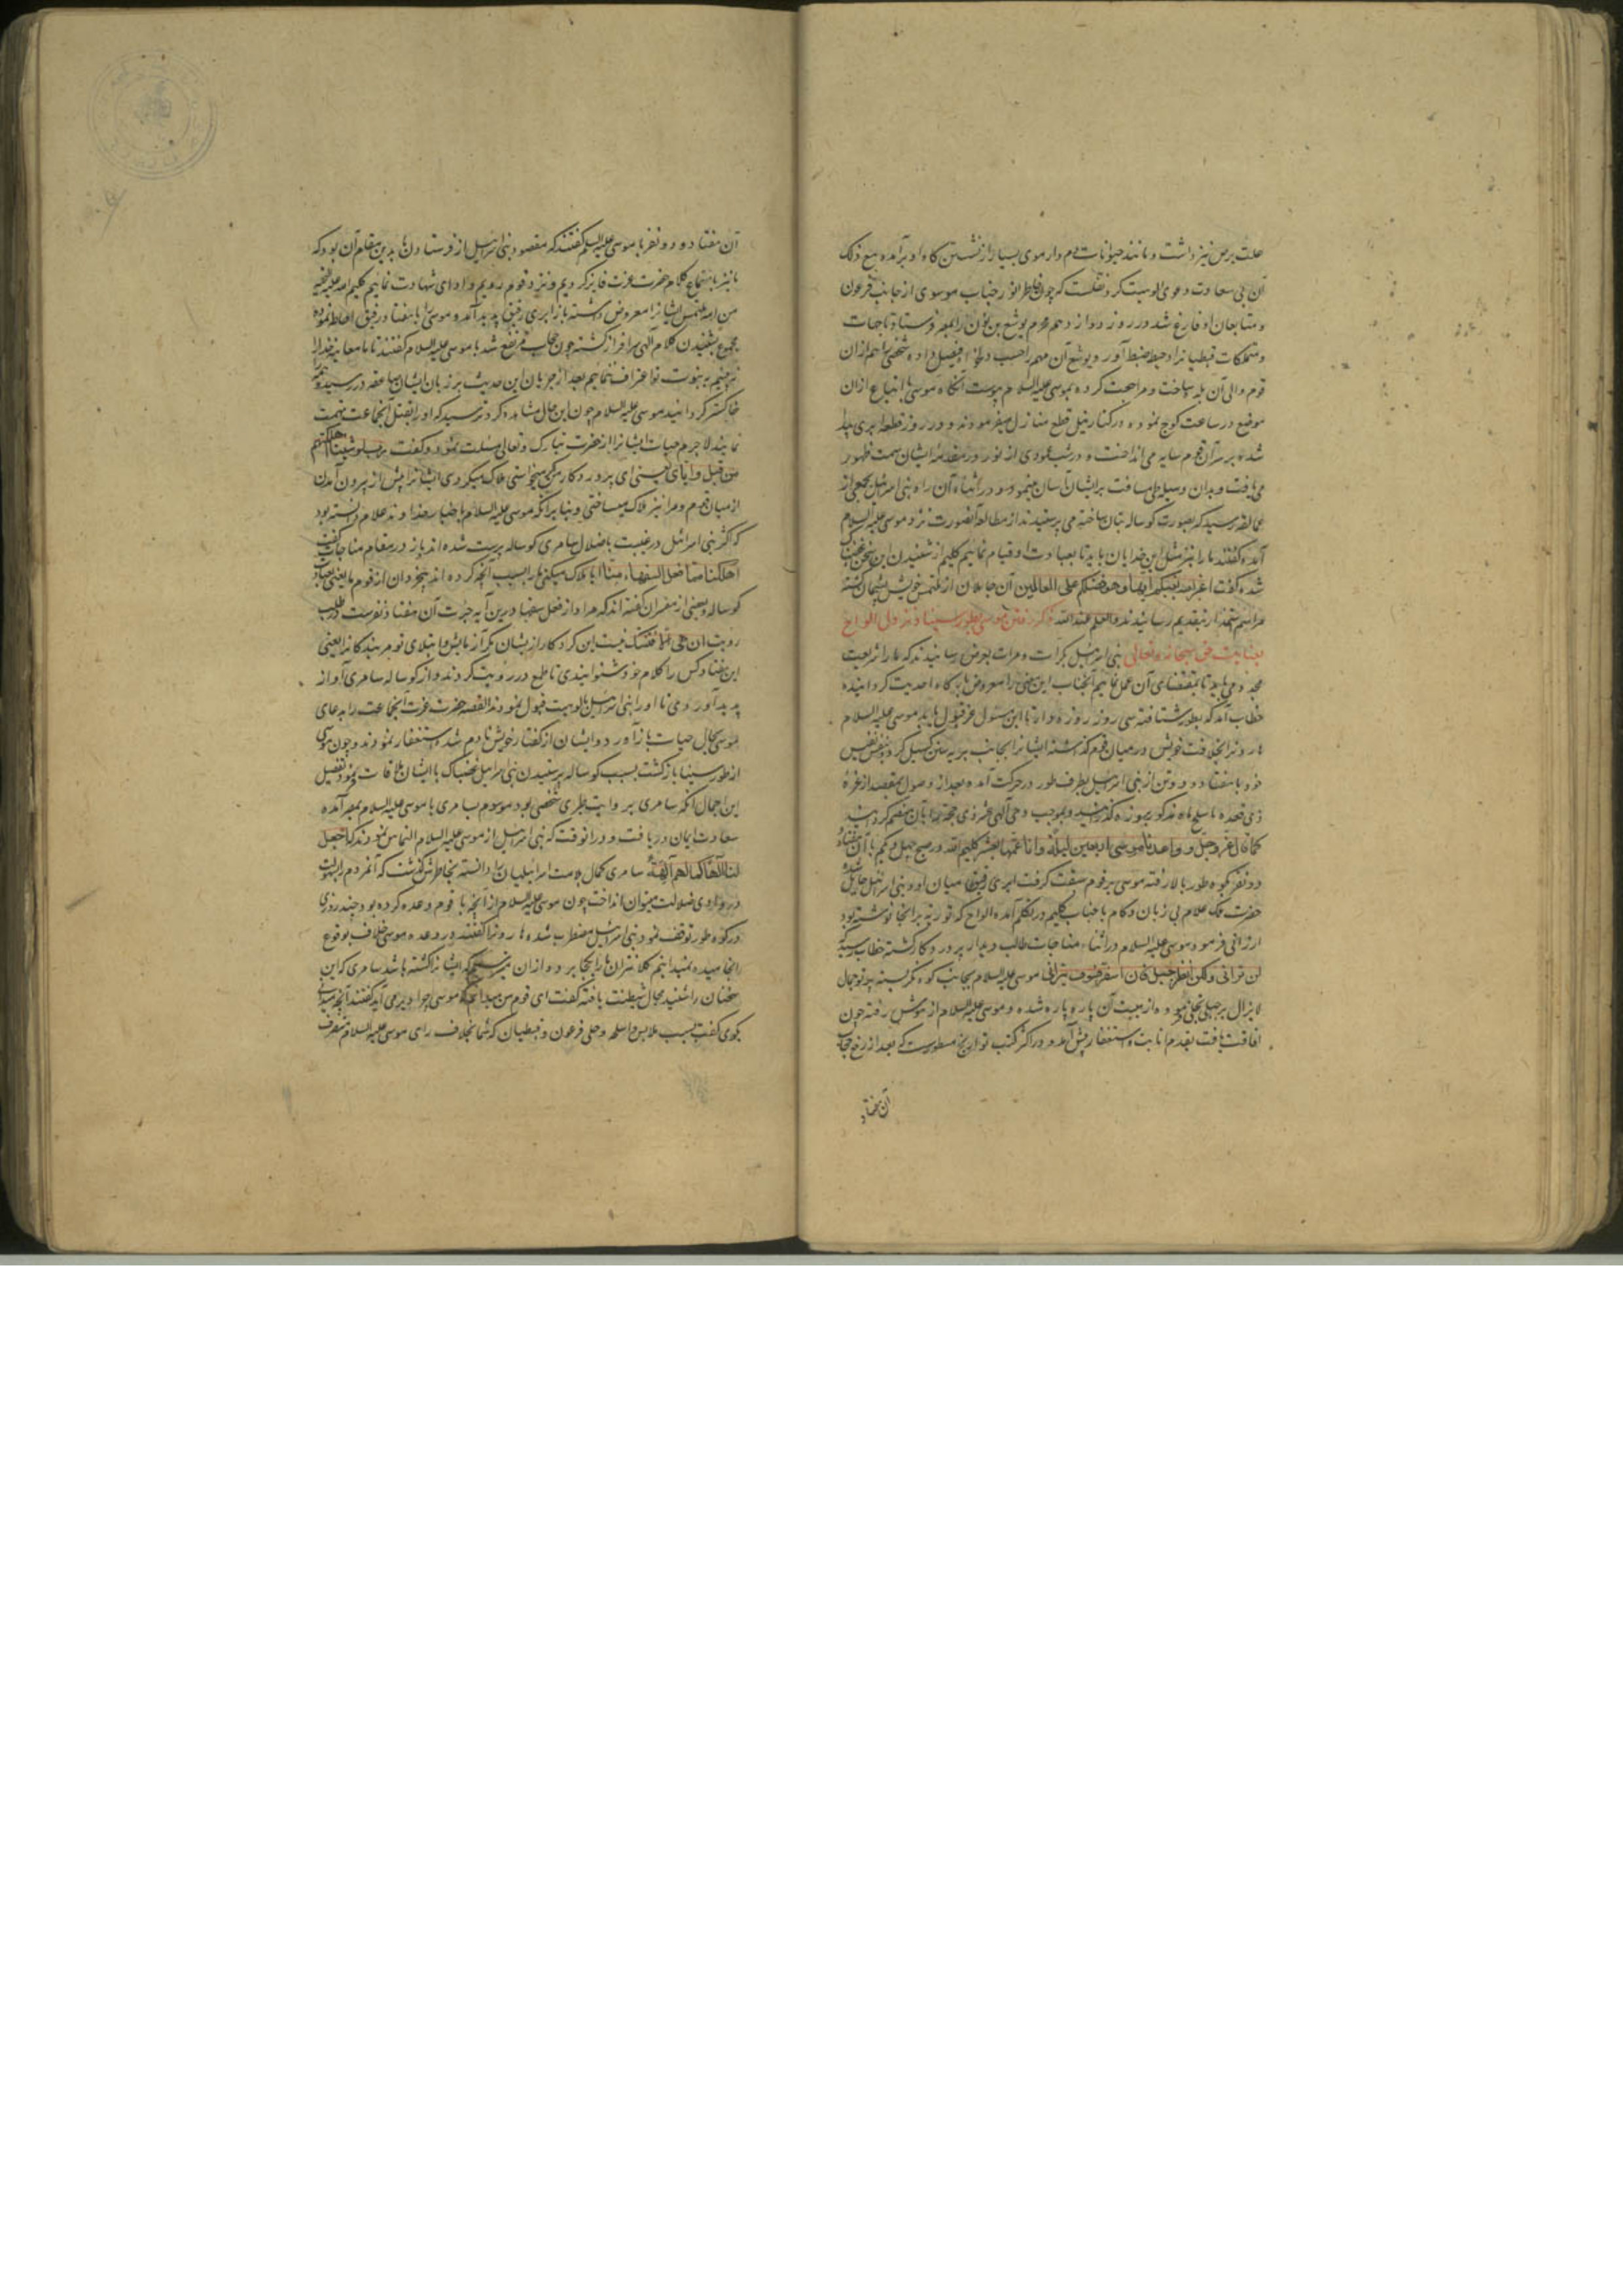 علت برص نیز داشت و مانند حیوانات دم دار موی بسیار از نشستن کاه او برآمده مع ذلک
آن بی سعادت دعوی الوهیت کرد نقلست که چون خاطر انور جناب موسوی از جانب فرعون
و متابعان او فارغ شد در روز دوازدهم محرم یوشع بن نون را بمصر فرستاد تا جهات
و متملکات قبطیانرا در حیطه ضبط آورد و یوشع آن مهم را حسب دلخواه فیصل داده شخصی را هم از ان
قوم والی آن بلده ساخت و مراجعت کرده بموسی علیه السلام پیوست آنگاه موسی با اتباع از ان
موضع در ساعت کوچ نموده در کنار نیل قطع منازل میفرمودند و در روز قطعه ابری پیدا
شده بر سر آن قوم سایه می انداخت و در شب عمودی از نور در مقدمه ایشان سمت ظهور
می یافت و بدان وسیله طی مسافت بر ایشان آسان مینمود و در اثناء آن راه بنی اسرائیل بجمعی از
عمالقه رسیدند که بصورت کوساله بتان ساخته می پرستیدند از مطالعه آنصورت نزد موسی علیه السلام
آمده گفتند ما را نیز مثل این خدایان باید تا بعبادت او قیام نمائیم کلیم از شنیدن این سخن غضبناک
شده گفت اغیر الله ابغیکم الها و هو فضلکم علی العالمین آن جاهلان از ملتمس خویش پشیمان گشته
مراسم اعتذار بتقدیم رسانیدند و العلم عند الله ذکر رفتن موسی بطور سینا و نزول الواح
بعنایت حق سبحانه و تعالی بنی اسرائیل بکرات و مرات بعرض رسانیدند که ما را شریعت
مجدد می باید تا بمقتضای آن عمل نمائیم آنجناب این معنی را معروض بارگاه احدیت گردانیده
خطاب آمد که بطور شتافته سی روز روزه دار تا این مسئول عز قبول یابد موسی علیه السلام
هارونرا بخلافت خویش در میان قوم گذاشته ایشانرا بجانب بریه سین گسیل کرد و بنفس نفیس
خود با هفتاد و دو تن از بنی اسرائیل بطرف طور در حرکت آمده بعد از وصول بمقصد از غره
ذی قعده تا سلخ ماه مذکور بروزه گذرانید و بموجب وحی آلهی عشر ذی حجه را بآن منضم گردانید
کما قال عز و جل و واعدنا موسی اربعین لیلة و اتممناها بعشر کلیم الله در صبح چهل و یکم با آن هفتاد
و دو نفر بکوه طور بالا رفته موسی بر قوم سبقت گرفت ابری رقیق میان او و بنی اسرائیل حایل شده
حضرت ملک علام بی زبان و کام با جناب کلیم در تکلم آمده الواح که توریة بر آنجا نوشته بود
ارزانی فرمود موسی علیه السلام در اثناء مناجات طالب دیدار پروردگار گشته خطاب رسید که
لن ترانی و لکن انظر الی الجبل فان استقر فسوف ترانی موسی علیه السلام بجانب کوه نگریسته پرتو جمال
لایزال بر جبل تجلی نمود و از هیبت آن پاره پاره شده و موسی علیه السلام از هوش رفته چون
افاقت یافت بقدم انابت و استغفار پیش آمد و در اکثر کتب تواریخ مسطورست که بعد از رفع حجاب
آن هفتاد
آن هفتاد و دو نفر با موسی علیه السلام گفتند که مقصود بنی اسرائیل از فرستادن ما بدین مقام آن بود که
ما نیز باستماع کلام حضرت عزت فایز گردیم و نزد قوم رویم و ادای شهادت نمائیم کلیم الله علیه التحیه
من الله ملتمس ایشانرا معروض داشته باز ابری رقیق پدید آمد و موسی را با هفتاد رفیق احاطه نموده
مجموع بشنیدن کلام آلهی سرافراز گشته چون حجاب مرتفع شد با موسی علیه السلام گفتند تا ما معاینه خدا را
نه بینیم به نبوت تو اعتراف ننمائیم بعد از جریان این حدیث بر زبان ایشان صاعقه در رسیده همه را
خاکستر گردانید موسی علیه السلام چون این حال مشاهده کرد ترسید که او را بقتل آنجماعت متهم
نمایند لاجرم حیات ایشانرا از حضرت تبارک و تعالی مسئلت نمود و گفت رب لو شئت اهلکتهم
من قبل و ایای یعنی ای پروردگار من اگر میخواستی هلاک میکردی ایشانرا پیش از بیرون آمدن
از میان قوم و مرا نیز هلاک میساختی و بنابر آنکه موسی علیه السلام باخبار خداوند علام دانسته بود
که اکثر بنی اسرائیل در غیبت باضلال سامری کوساله پرست شده اند باز در مقام مناجات گفت
اتهلکنا بما فعل السفهاء منا آیا هلاک میکنی ما را بسبب آنچه کرده اند بیخردان از قوم ما یعنی عبادت
کوساله و بعضی از مفسران گفته اند که مراد از فعل سفها درین آیه جرأت آن هفتاد نفرست در طلب
رویت ان هی الا فتنتک نیست این کردکار از یشان مگر آزمایش و ابتلای تو مر بندگانرا یعنی
این هفتاد کس را کلام خود شنوانیدی تا طمع در رویت کردند و از کوساله سامری آواز
پدید آوردی تا او را بنی اسرائیل بالوهیت قبول نمودند القصه حضرت عزت آنجماعت را بدعای
موسی بحال حیات باز آورد و ایشان از گفتار خویش نادم شده استغفار نمودند و چون موسی
از طور سینا بازگشت بسبب کوساله پرستیدن بنی اسرائیل غضبناک با ایشان ملاقات نمود تفصیل
این اجمال آنکه سامری بروایت طبری شخصی بود موسوم بسامری با موسی علیه السلام بمصر آمده
سعادت ایمان دریافت و در آنوقت که بنی اسرائیل از موسی علیه السلام التماس نمودند که اجعل
لنا الها کما لهم آلهة سامری کمال بلاهت اسرائیلیان را دانسته بخاطرش گذشت که آنمردم را بسهولت
در وادی ضلالت میتوان انداخت چون موسی علیه السلام از آنچه با قوم وعده کرده بود چند روزی
در کوه طور توقف نمود بنی اسرائیل مضطرب شده هارونرا گفتند در وعده موسی خلاف بوقوع
انجامیده نمیدانیم کلانتران ما را بکجا برد و از ان میترسیم که ایشانرا کشته باشد سامری که این
سخنان را شنید مجال شیطنت یافته گفت ای قوم من میدانم که موسی چرا دیر می آید گفتند آنچه میدانی
بگوی گفت بسبب ملابس و اسلحه و حلی فرعون و قبطیان که شما بخلاف رای موسی علیه السلام تصرف